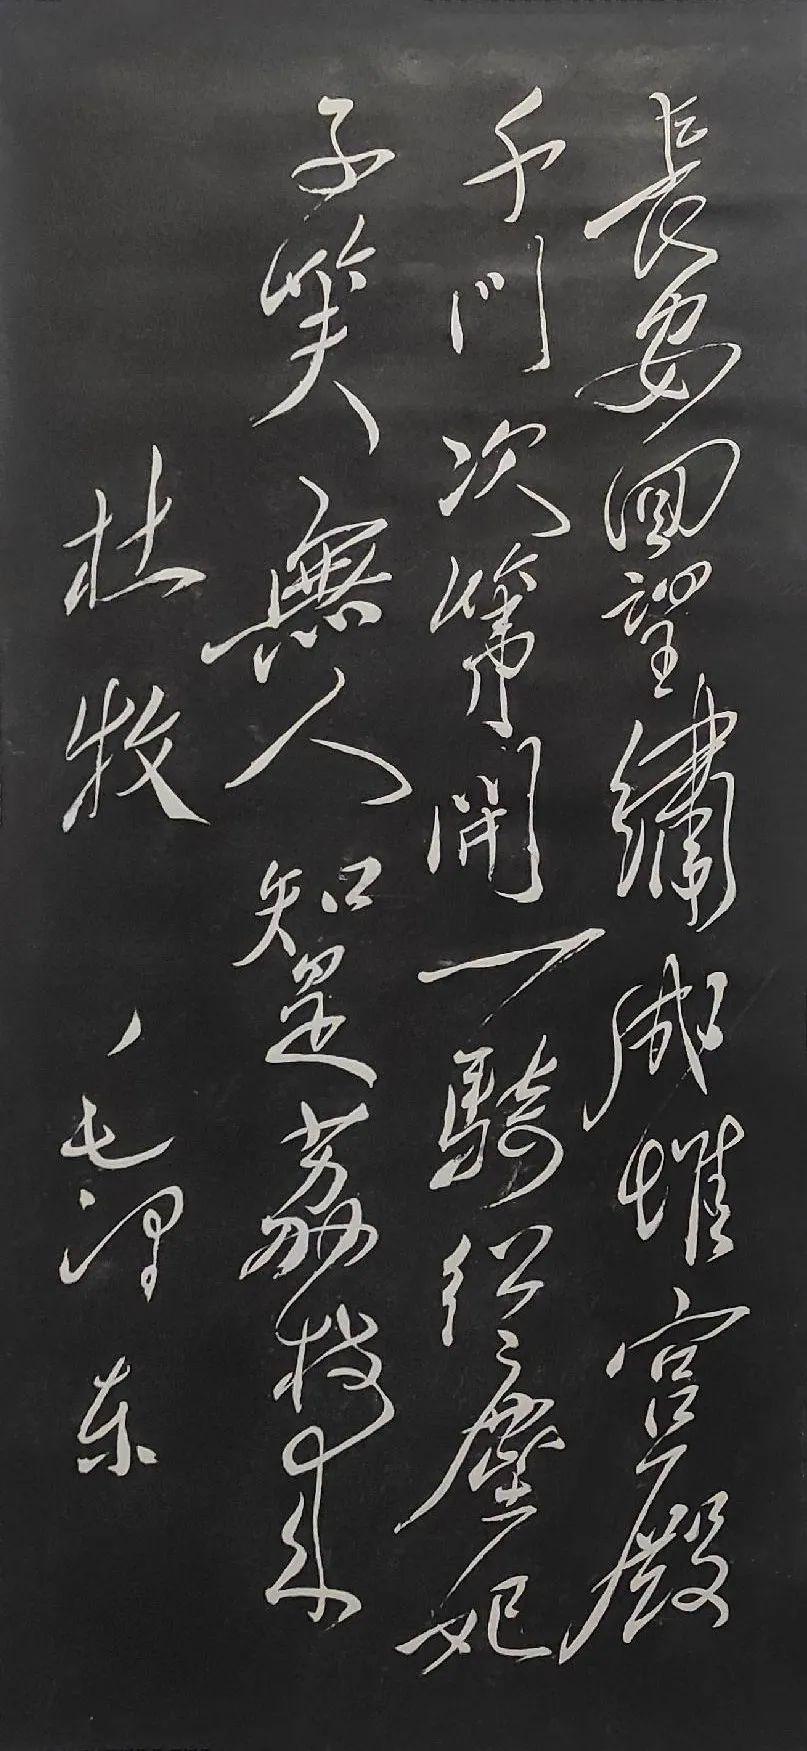 長安回望繡成堆宮殿
千門次第開一騎紅塵妃
子笑無人知是荔枝來
杜牧 毛澤东